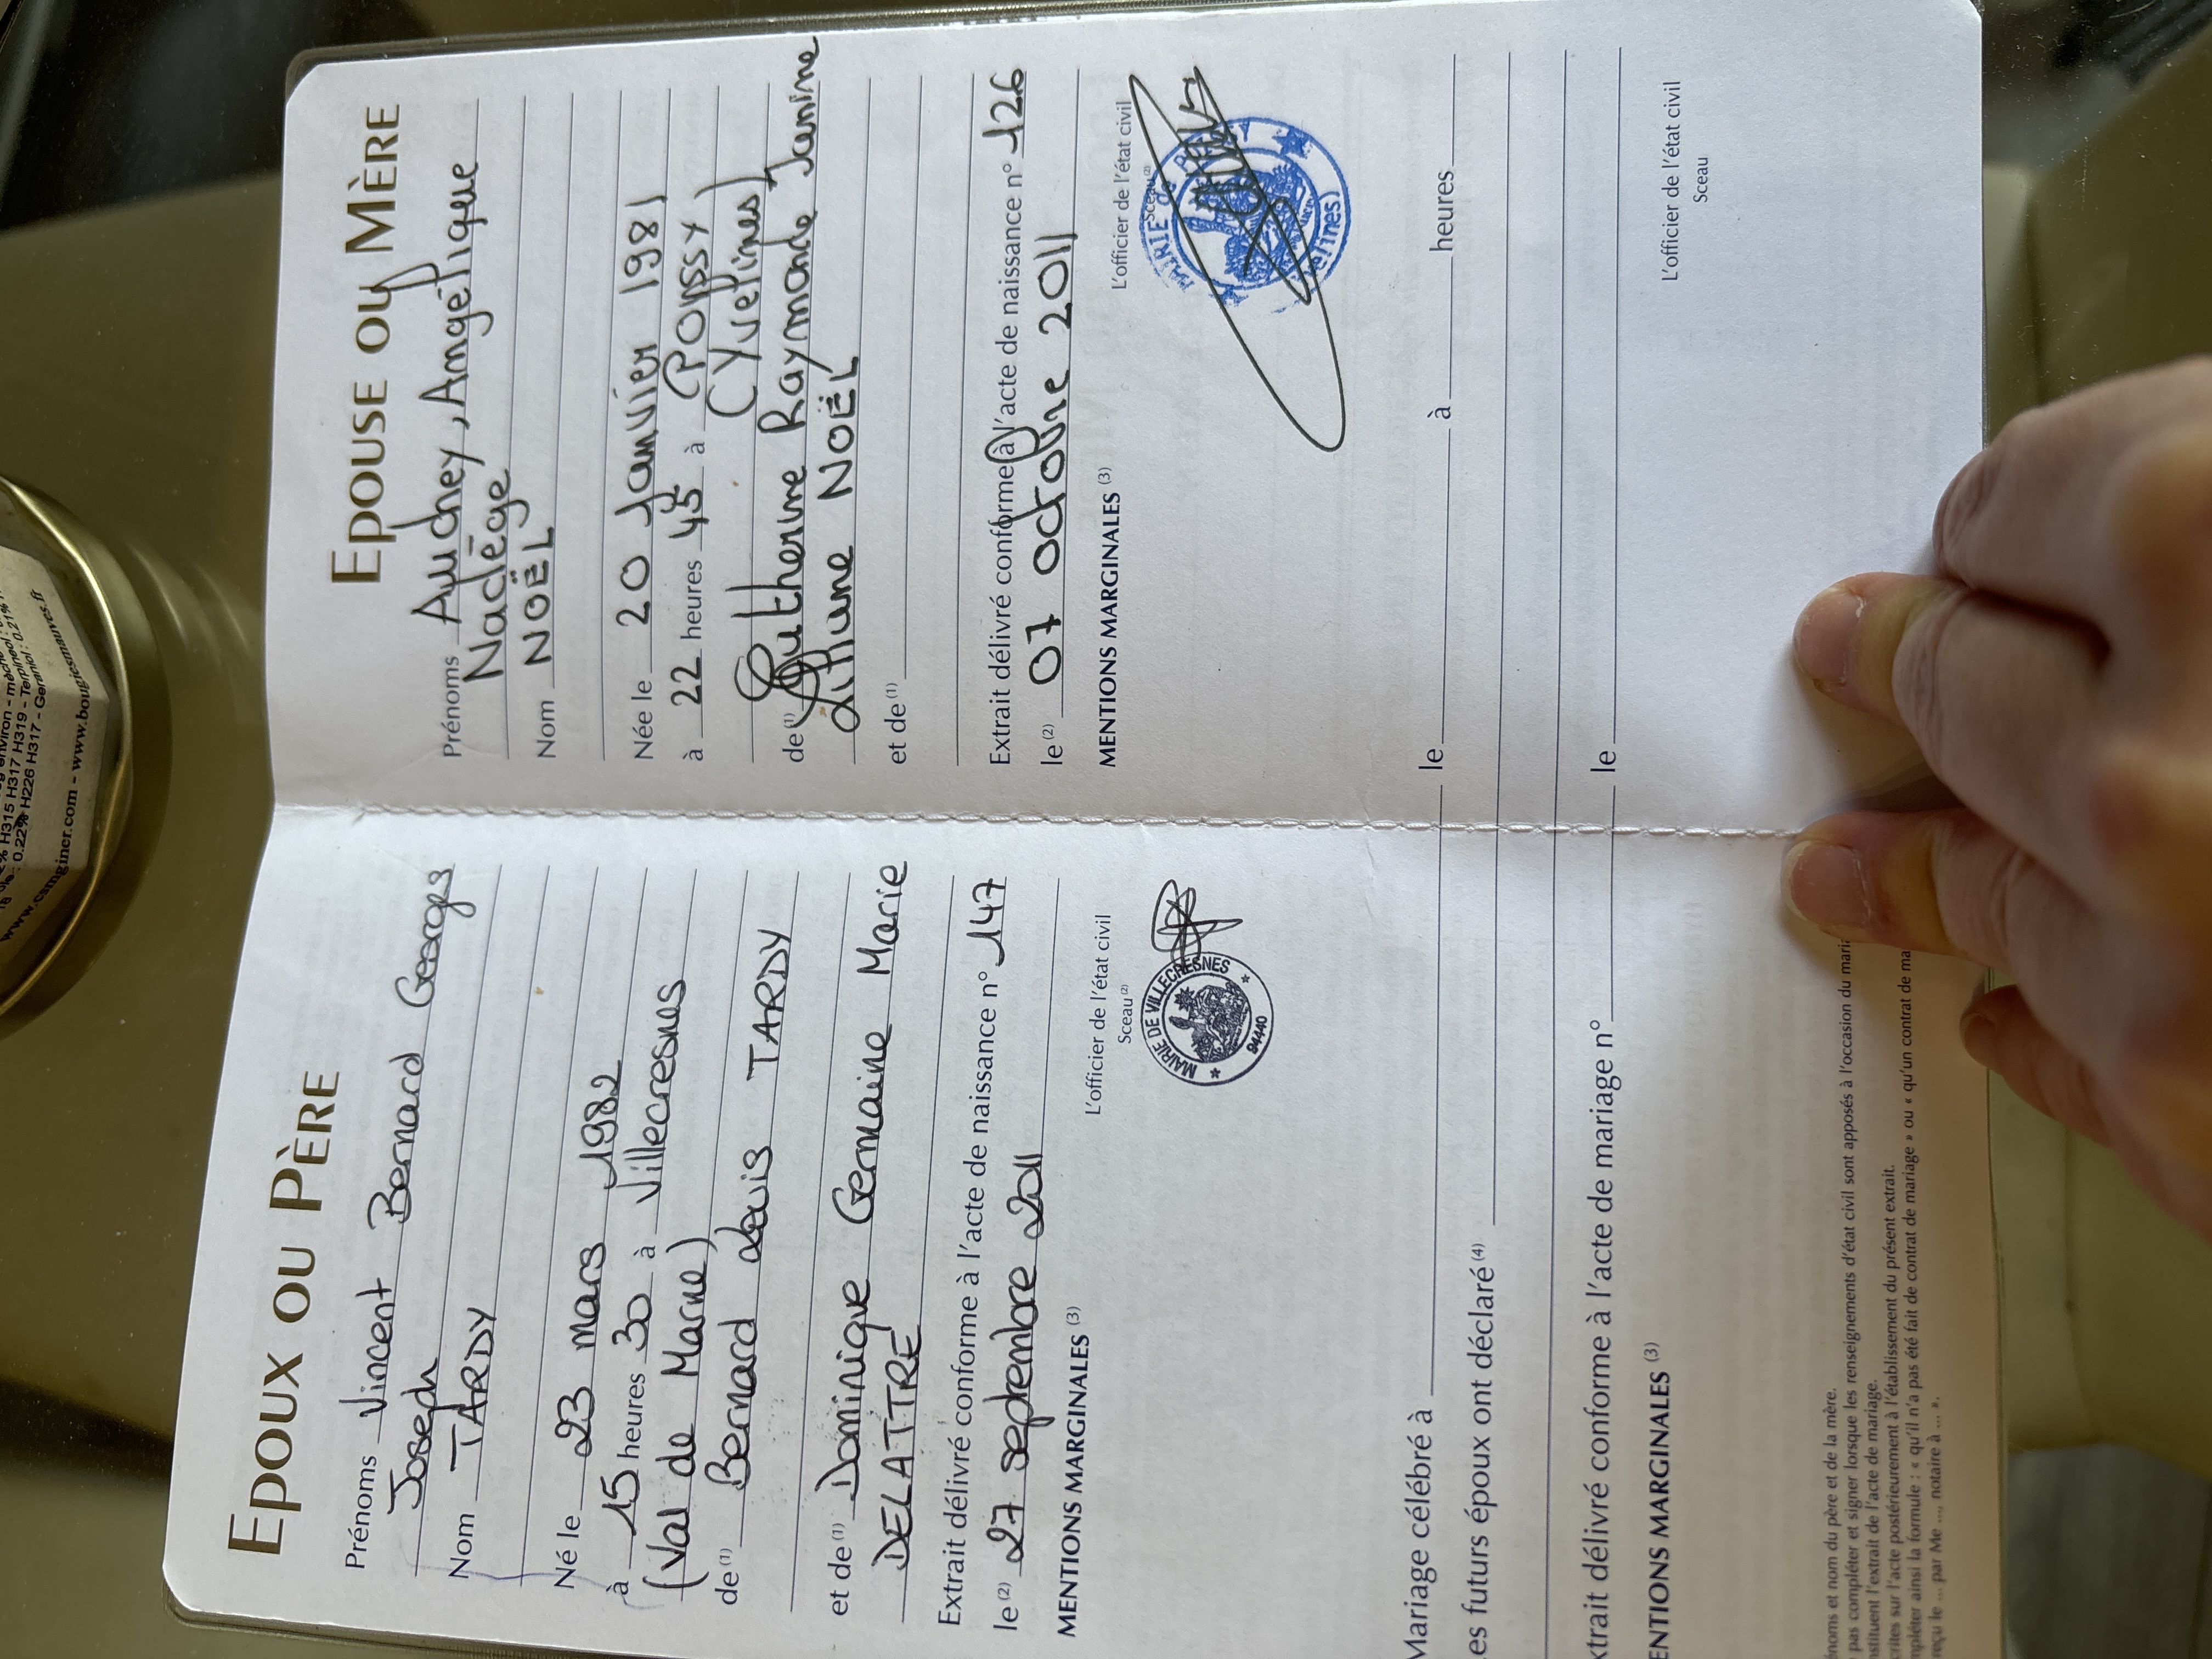 EPOUX OU PÈRE
Prénoms Vincent Bernard Georges
Joseph
Nom TARDY
Né le 23 mars 1982
à 15 heures 30 à Villecresnes
(Val de Marne)
de (1) Bernard Louis TARDY
et de (1) Dominique Germaine Marie
DELATTRE
Extrait délivré conforme à l'acte de naissance n° 147
le (2) 27 septembre 2011
MENTIONS MARGINALES (3)
L'officier de l'état civil
Sceau (2)
MAIRIE DE VILLECRESNES
94440
EPOUSE OU MÈRE
Prénoms Audrey, Angélique
Nadège
Nom NOËL
Née le 20 Janvier 1981
à 22 heures 45 à POISSY
(Yvelines)
de (1) Catherine Raymonde Janine
NOËL
et de (1)
Extrait délivré conforme à l'acte de naissance n° 126
le (2) 07 octobre 2011
MENTIONS MARGINALES (3)
L'officier de l'état civil
Sceau (2)
MAIRIE de
Mariage célébré à le à heures
es futurs époux ont déclaré (4)
xtrait délivré conforme à l'acte de mariage n° le
ENTIONS MARGINALES (3)
L'officier de l'état civil
Sceau
énoms et nom du père et de la mère.
pas compléter et signer lorsque les renseignements d'état civil sont apposés à l'occasion du maria
nstituent l'extrait de l'acte de mariage.
crites sur l'acte postérieurement à l'établissement du présent extrait.
mpléter ainsi la formule : « qu'il n'a pas été fait de contrat de mariage » ou « qu'un contrat de ma
reçu le ... par Me ..., notaire à ... ».
H315 H317 H319 - Terpineol : 0.21%
0.22% H226 H317 - Geraniol :
www.csmginer.com - www.bougiesmauves.fr